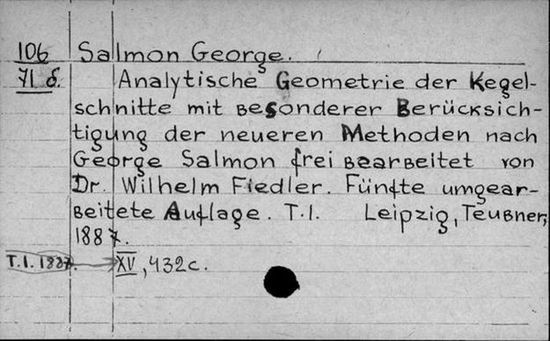 106 Salmon George.
71 б. Analytische Geometrie der Kegel-
schnitte mit besonderer Berücksich-
tigung der neueren Methoden nach
George Salmon frei bearbeitet von
Dr. Wilhelm Fiedler. Fünfte umgear-
beitete Auflage. T.I. Leipzig, Teubner,
1887.
T.I. 1887. XV, 432c.